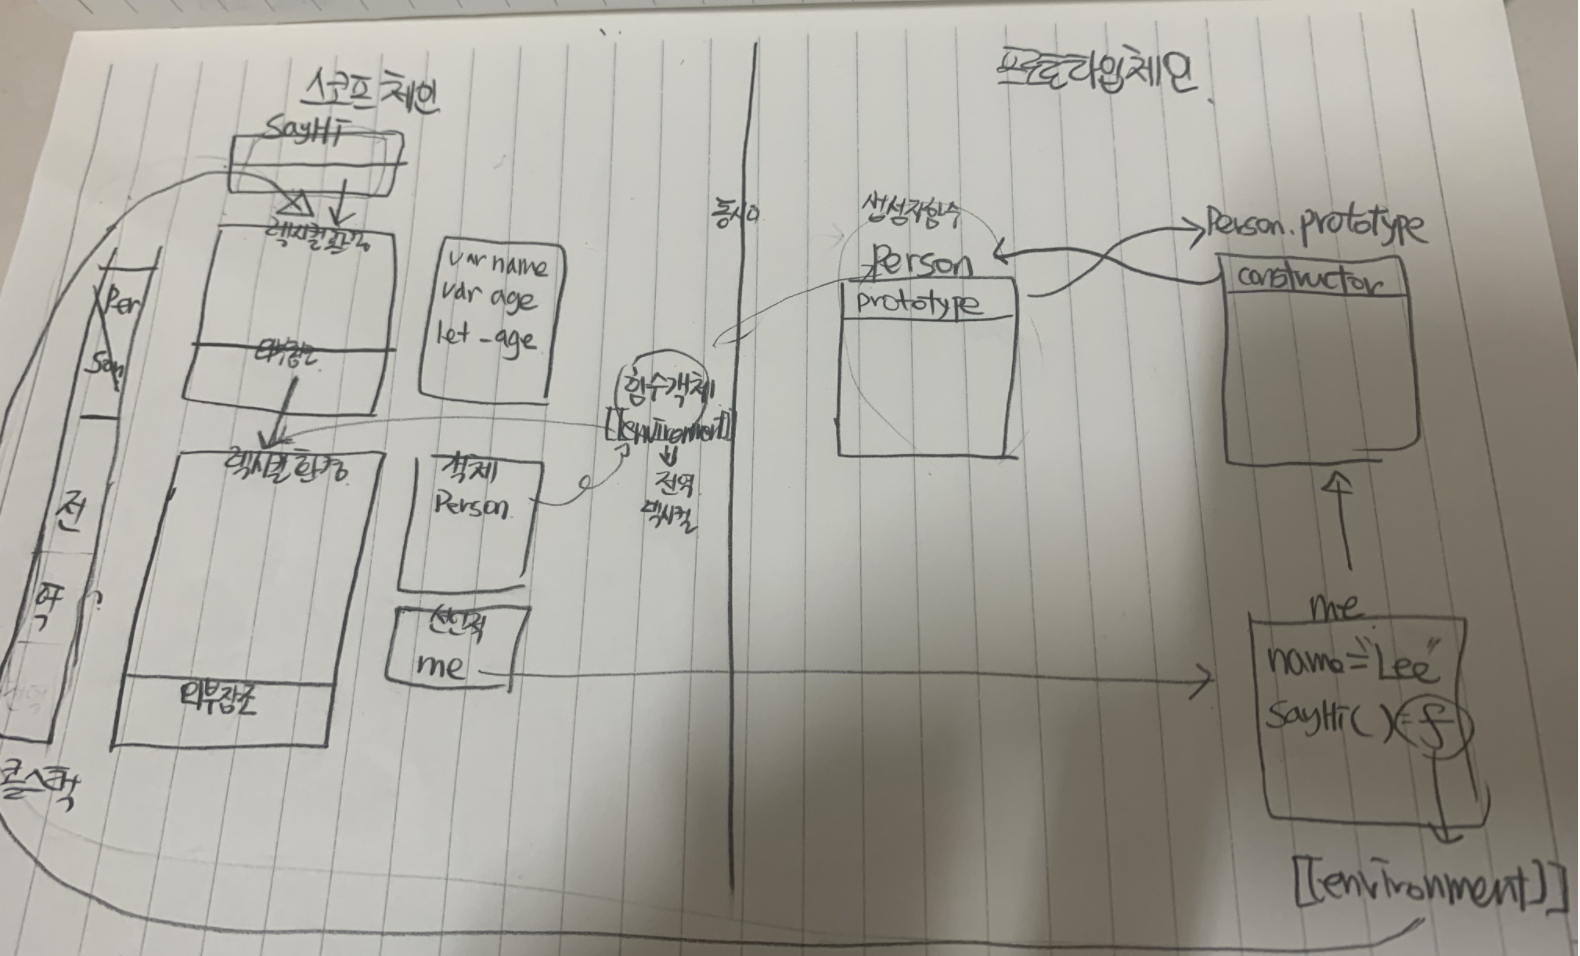 스코프 체인
SayHi
렉시컬환경
외부참조
var name
var age
let _age
Per
Son
전
역
콜스택
렉시컬 환경
외부참조
객체
Person
선언적
me
함수객체
[[enviroment]]
전역
렉시컬
동시에
프로토타입체인
생성자함수
Person
prototype
Person.prototype
constructor
me
name="Lee"
SayHi()=f
[[environment]]